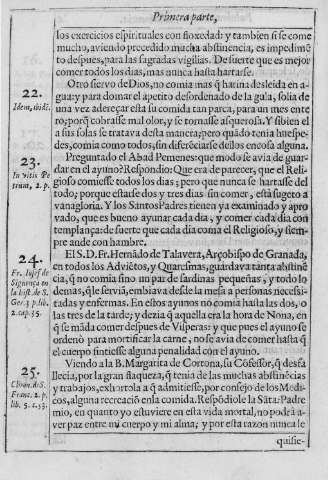 Primera parte,
los exercicios espirituales con floxedad: y tambien si se come
mucho, aviendo precedido mucha abstinencia, es impedimẽ
to despues, para las sagradas vigilias. De suerte que es mejor
comer todos los dias, mas nunca hasta hartarse.
22.
Idem, ibidē.
Otro siervo de Dios, no comia mas q̃ harina desleida en a-
gua: y para domar el apetito desordenado de la gula, solia de
una vez adereçar esta su comida tan parca, para un mes ente
ro; porq̃ cobrasse mal olor, y se tornasse asquerosa. Y si bien el
a sus solas se tratava desta manera; pero quãdo tenia huespe-
des, comia como todos, sin diferẽciarse dellos en cosa alguna.
23.
In vitis Pa
trum, 2. p.
Preguntado el Abad Pemenes: que modo se avia de guar-
dar en el ayuno? Respondio: Que era de parecer, que el Reli-
gioso comiesse todos los dias; pero que nunca se hartasse del
todo; porque estarse dos y tres dias sin comer, está sugeto a
vanagloria. Y los Santos Padres tienen ya examinado y apro
vado, que es bueno ayunar cada dia, y comer cada dia con
templança: de suerte que cada dia coma el Religioso, y siem-
pre ande con hambre.
24.
Fr. Iusef de
Siguença en
la hist. de S.
Ger. 3 p. lib.
2. cap. 35.
El S. D. Fr. Hernãdo de Talavera, Arçobispo de Granada,
en todos los Adviẽtos, y Quaresmas, guardava tanta abstinẽ
cia, q̃ no comia sino un par de sardinas pequeñas, y todo lo
demas, q̃ le serviã, embiava desde la mesa a personas necessi-
tadas y enfermas. En estos ayunos nõ comia hasta las dos, o
las tres de la tarde; y dezia q̃ aquella era la hora de Nona, en
q̃ se mãda comer despues de Visperas: y que pues el ayuno se
ordenó para mortificar la carne, no se avia de comer hasta q̃
el cuerpo sintiesse alguna penalidad con el ayuno.
25.
Chron. de S.
Franc. 2. p.
lib. 5. c. 23.
Viendo a la B. Margarita de Cortona, su Cõfessor, q̃ desfa
llecia, por la gran flaqueza, q̃ tenia de las muchas abstinẽcias
y trabajos, exhortola a q̃ admitiesse, por consejo de los Medi-
cos, alguna recreació en la comida. Respõdiole la Sãta: Padre
mio, en quanto yo estuviere en esta vida mortal, no podrá a-
ver paz entre mi cuerpo y mi alma; y por esta razon nunca le
quisie-